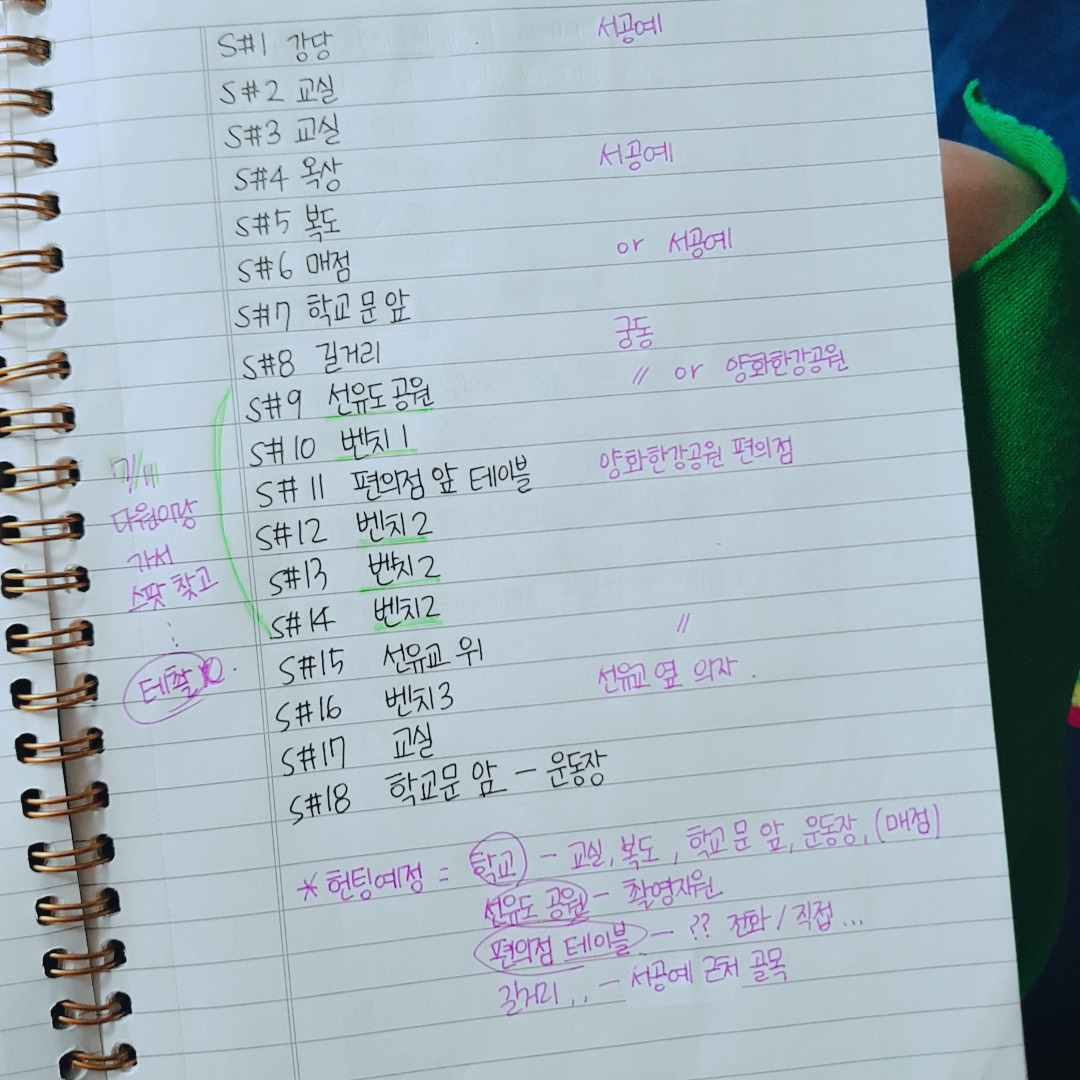 S#1 강당 서공예
S#2 교실
S#3 교실
S#4 옥상 서공예
S#5 복도
S#6 매점 or 서공예
S#7 학교 문 앞
S#8 길거리 궁동
S#9 선유도 공원 〃 or 양화한강공원
S#10 벤치 1
S#11 편의점 앞 테이블 양화한강공원 편의점
S#12 벤치 2
S#13 벤치 2
S#14 벤치2
S#15 선유교 위 〃
S#16 벤치3 선유교 옆 의자.
S#17 교실
S#18 학교문 앞 - 운동장
7/11
다원이랑
가서
스팟 찾고
⋮
테촬
* 헌팅예정 = 학교 - 교실, 복도, 학교 문 앞, 운동장, (매점)
선유도 공원 - 촬영지원
편의점 테이블 - ?? 전화 / 직접 ...
길거리 .. - 서공예 근처 골목